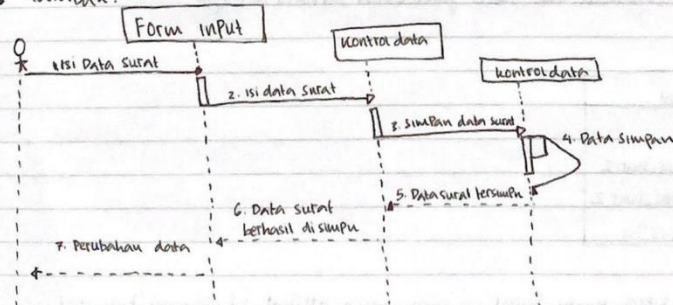 Form input
kontrol data
kontrol data
1. isi Data surat
2. isi data surat
3. simpan data surat
4. Data simpan
5. Data surat tersimpn
6. Data surat
berhasil disimpn
7. Perubahan data